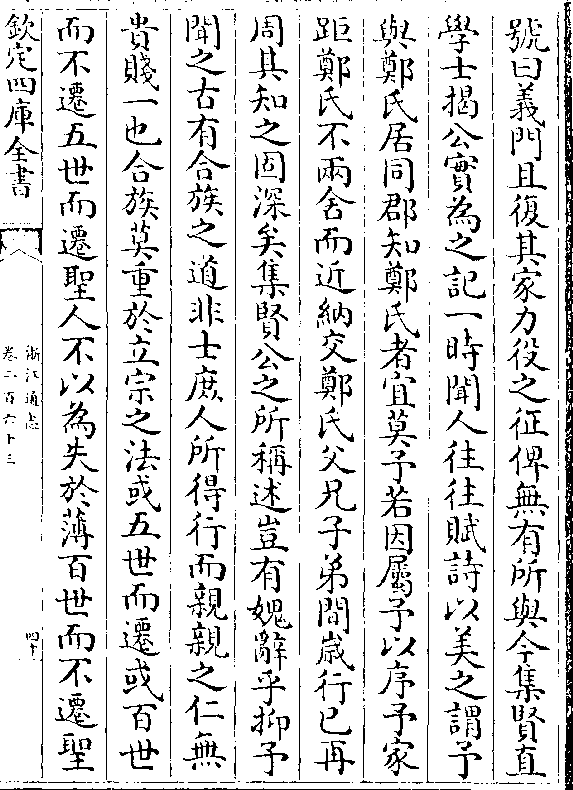 號曰義門且復其家力役之征俾無有所與今集賢直
學士揭公實為之記一時聞人往往賦詩以美之謂予
與鄭氏居同郡知鄭氏者宜莫予若因屬予以序予家
距鄭氏不兩舍而近納交鄭氏父兄子弟間嵗行已再
周其知之固深矣集賢公之所稱述豈有媿辭乎抑予
聞之古有合族之道非士庶人所得行而親親之仁無
貴賤一也合族莫重於立宗之法或五世而遷或百世
而不遷五世而遷聖人不以為失於薄百世而不遷聖
欽定四庫全書
浙江通志
卷二百六十三
四十